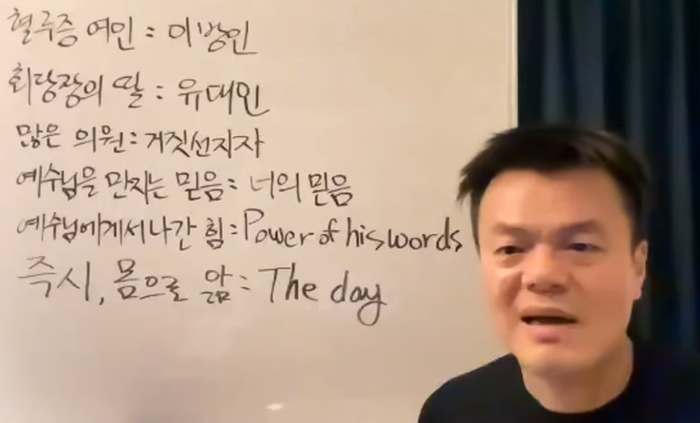 혈루증 여인 : 이방인
회당장의 딸 : 유대인
많은 의원 : 거짓선지자
예수님을 만지는 믿음 : 너의 믿음
예수님에게서 나간 힘 : Power of his words
즉시, 몸으로 앎 : The day